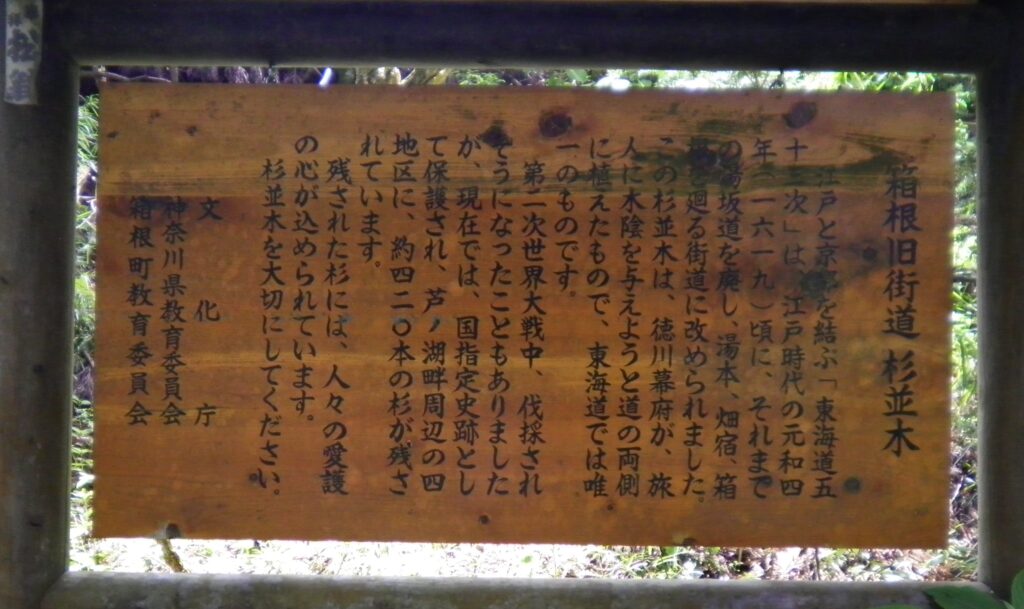 箱根旧街道 杉並木
江戸と京都を結ぶ「東海道五
十三次」は、江戸時代の元和四
年（一六一九）頃に、それまで
の湯坂道を廃し、湯本、畑宿、箱
根を廻る街道に改められました。
この杉並木は、徳川幕府が、旅
人に木陰を与えようと道の両側
に植えたもので、東海道では唯
一のものです。
第二次世界大戦中、伐採され
そうになったこともありました
が、現在では、国指定史跡とし
て保護され、芦ノ湖畔周辺の四
地区に、約四二〇本の杉が残さ
れています。
残された杉には、人々の愛護
の心が込められています。
杉並木を大切にしてください。
文化庁
神奈川県教育委員会
箱根町教育委員会